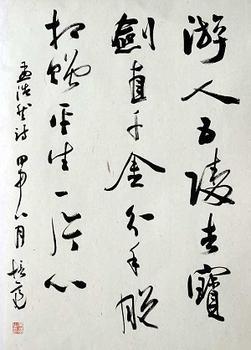 游人五陵去寶
劍直千金分手脫
相贈平生一片心
孟浩然詩 甲申八月